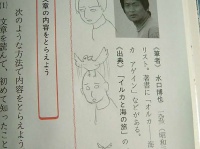 〈筆者〉 水口博也
リスト。著書に「オルカ
カ アゲイン」などがある。
〈出典〉「イルカと海の旅」の
文章の内容をとらえよう
次のような方法で内容をとらえよう
(1) 文章を読んで、初めて知ったこと